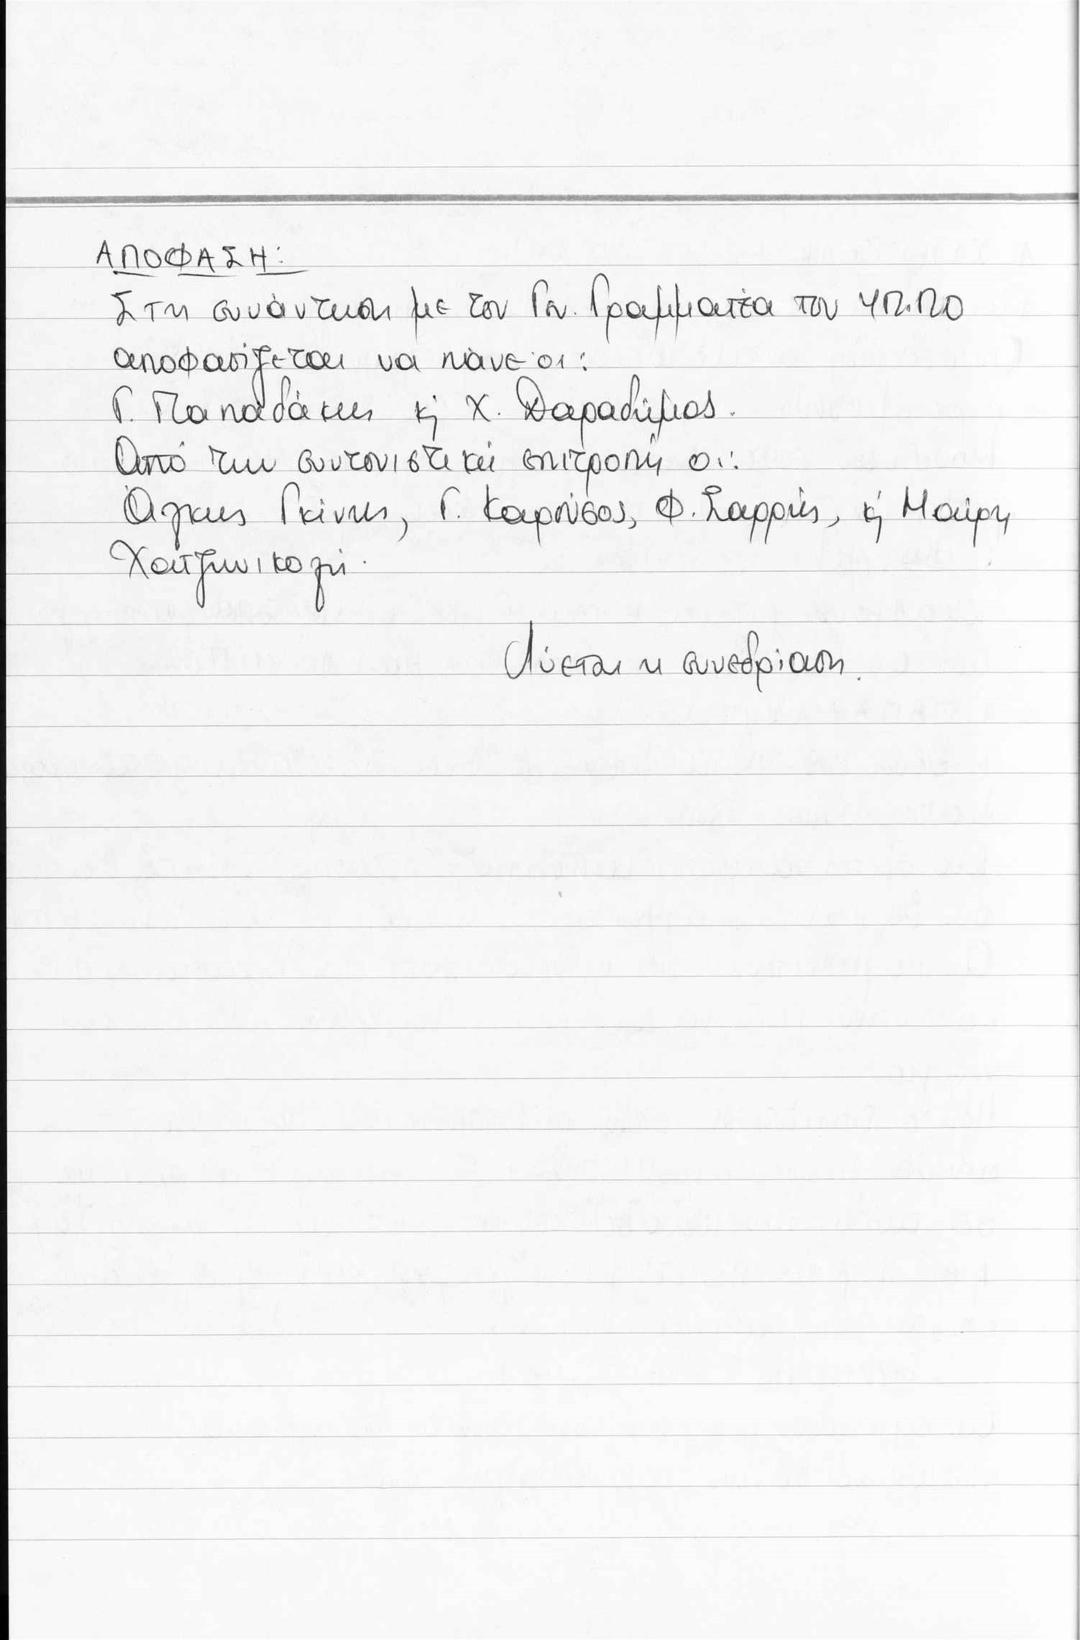 ΑΠΟΦΑΣΗ:
Στη συνάντηση με τον Γεν. Γραμματέα του ΥΠ.ΠΟ
αποφασίζεται να πάνε οι:
Γ. Παπαδάκης κ' Χ. Δαραδήμος.
Από την συντονιστική επιτροπή οι:
Άγκης Γκίνης, Γ. Καρούσος, Φ. Σαρρής, κ' Μαίρη
Χατζηνικολή.
Λύεται η συνεδρίαση.